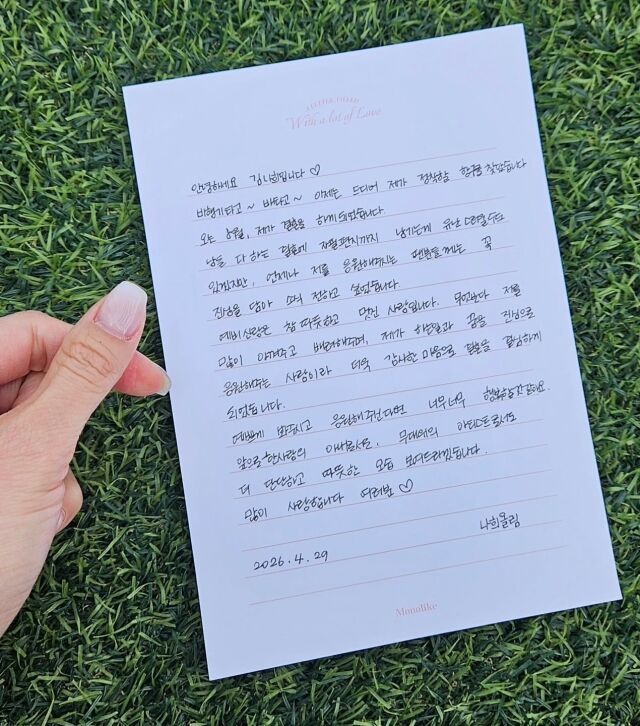 With a lot of Love
안녕하세요 김나희입니다 ♡
비행기타고~ 버타고~ 이제는 드디어 제가 정착할 항구를 찾았습니다
오는 9월, 제가 결혼을 하게되었습니다.
남들 다 하는 결혼에 자필편지까지 남기는게 유난스러울수도
있겠지만, 언제나 저를 응원해주시는 팬분들께는 꼭
진심을 담아 소식 전하고 싶었습니다.
예비신랑은 참 따뜻하고 멋진 사람입니다. 무엇보다 저를
많이 아껴주고 배려해주며, 제가 하는일과 꿈을 진심으로
응원해주는 사람이라 더욱 감사한 마음으로 결혼을 결심하게
되었습니다.
예쁘게 봐주시고 응원해주신다면 너무너무 행복할것 같아요.
앞으로 한사람의 아내로서도, 무대위의 아티스트로서도
더 단단하고 따뜻한 모습 보여드리겠습니다.
많이 사랑합니다 여러분 ♡
나희올림
2026.4.29
Monolike